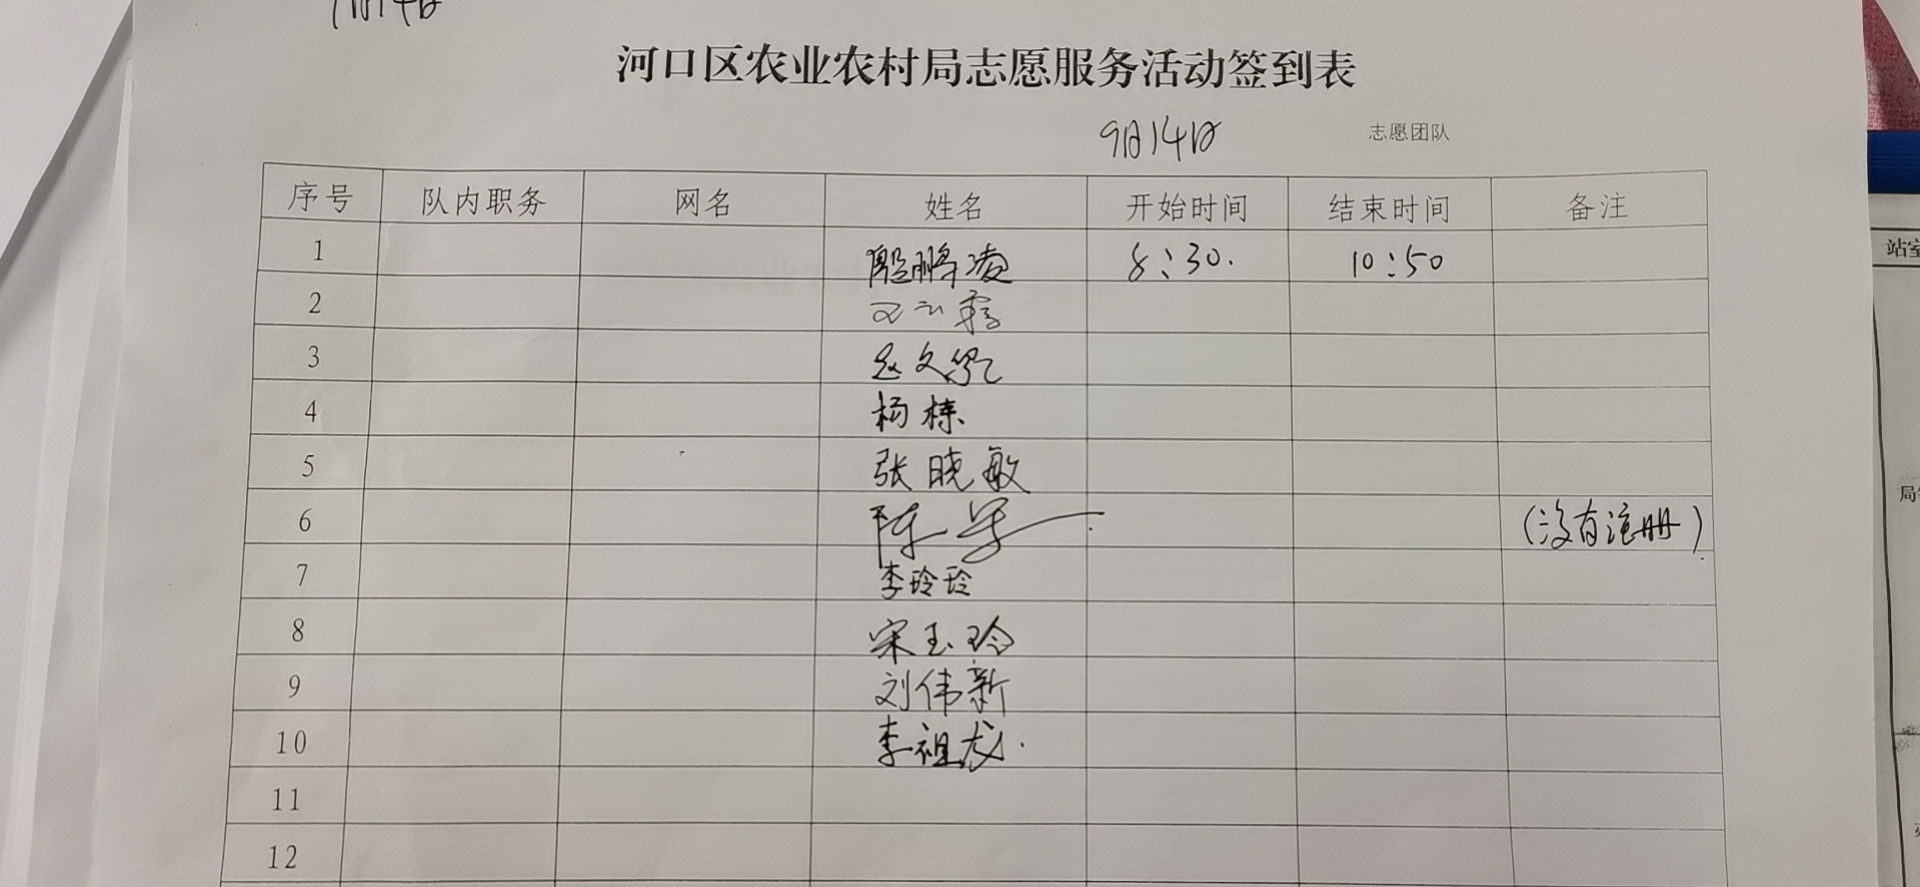 9月14日
河口区农业农村局志愿服务活动签到表
9月14日 志愿团队
序号 队内职务 网名 姓名 开始时间 结束时间 备注
1 殷鹏凌 8:30. 10:50
2
3 赵文
4 杨栋
5 张晓敏
6 陈军 (没有注册)
7 李玲玲
8 宋玉玲
9 刘伟新
10 李祖龙.
11
12
站室
局